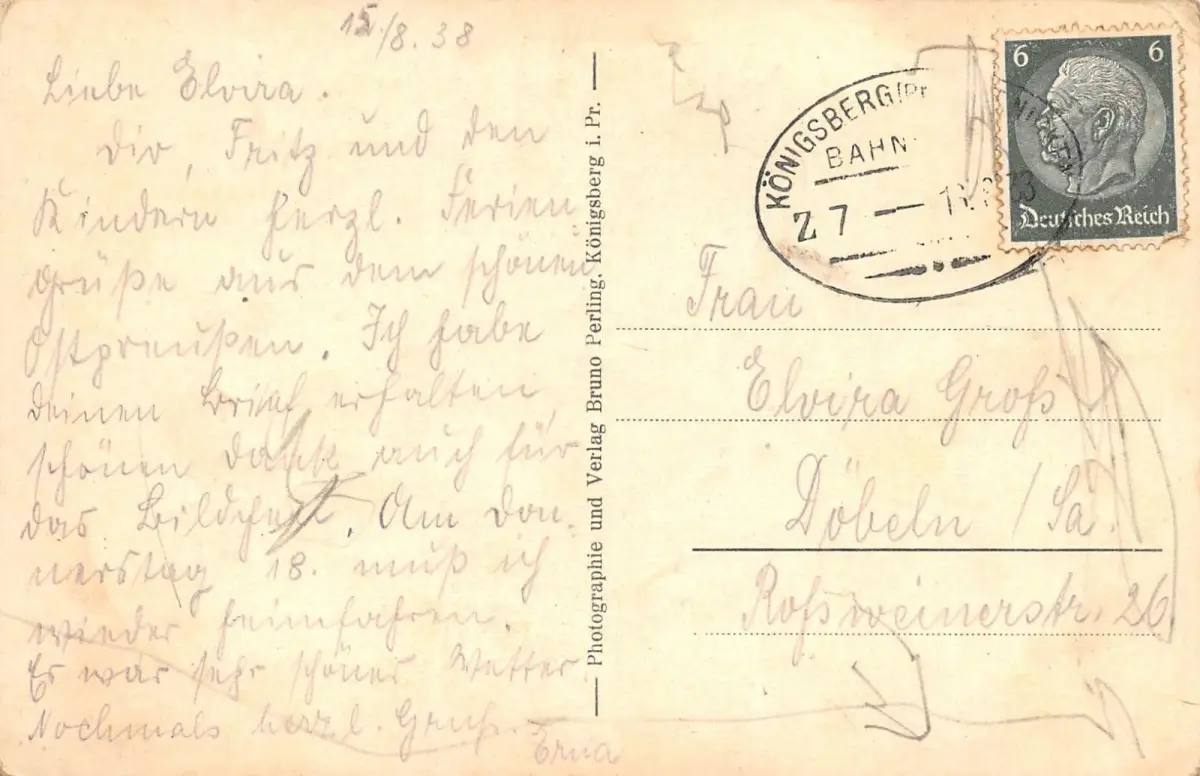 15/8. 38
Liebe Elvira.
Dir, Fritz und den
Kindern herzl. Ferien
grüße aus dem schönen
Ostpreußen. Ich habe
deinen Brief erhalten,
schönen Dank auch für
das Bildchen. Am Don-
nerstag 18. muß ich
wieder heimfahren.
Es war sehr schönes Wetter.
Nochmals herzl. Gruß.
Erna
Photographie und Verlag Bruno Perling, Königsberg i. Pr.
KÖNIGSBERG (Pr
BAHN
Z 7
6 6
Deutsches Reich
Frau
Elvira Groß
Döbeln / Sa.
Roßweinerstr. 26